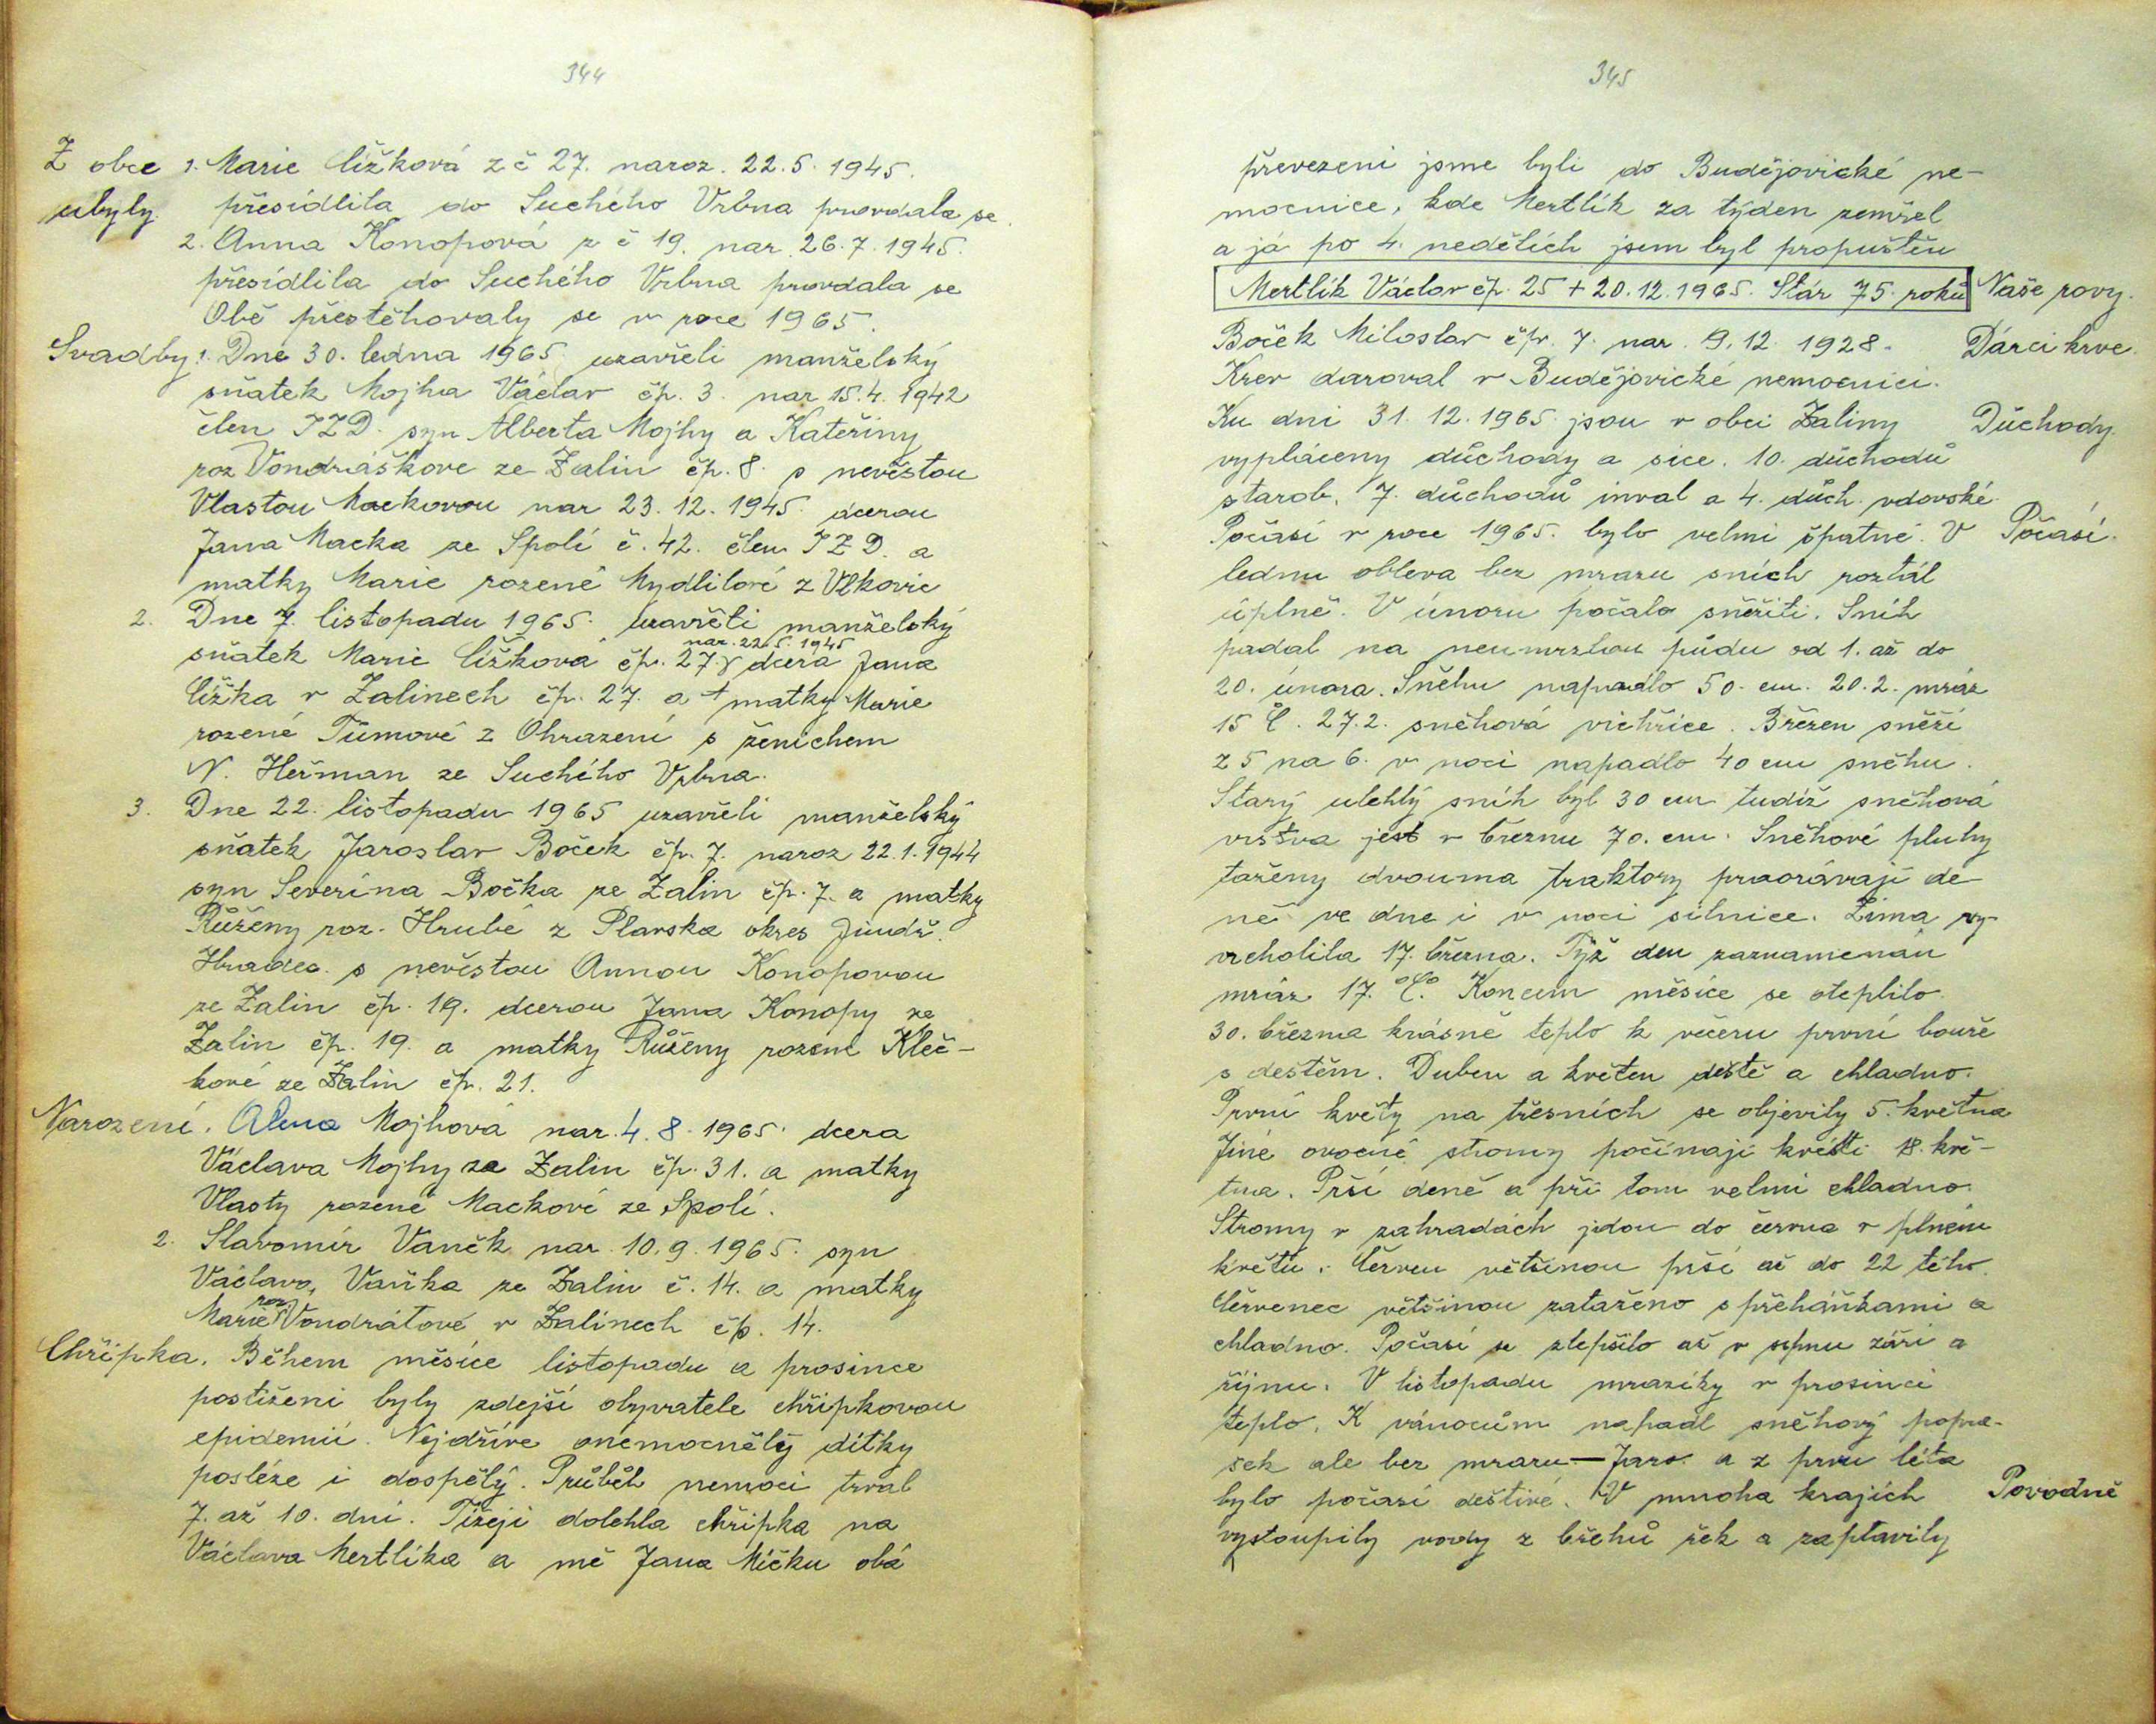 344
Z obce 1. Marie Čížková z č 27. naroz. 22.5. 1945.
ubyly. přesídlila do Suchého Vrbna provdala se.
2. Anna Konopová z č 19. nar. 26.7.1945.
přesídlila do Suchého Vrbna provdala se
Obě přestěhovaly se v roce 1965.
Svadby: 1. Dne 30. ledna 1965 uzavřeli manželský
sňatek Mojha Václav čp. 3. nar 15.4. 1942
člen JZD. syn Alberta Mojhy a Kateřiny
roz Vondráškove ze Zalin čp. 8. s nevěstou
Vlastou Mackovou nar 23.12.1945. dcerou
Jana Macka ze Spolí č. 42. člen JZD. a
matky Marie rozené Mydlilové z Vlkovic
2. Dne 7. listopadu 1965. uzavřeli manželský
sňatek Marie Čížková čp. 27. nar. 22.5.1945 dcera Jana
Čížka v Zalinech čp. 27. a + matky Marie
rozené Tůmové z Ohrazení s ženichem
N. Heřman ze Suchého Vrbna.
3. Dne 22. listopadu 1965 uzavřeli manželský
sňatek Jaroslav Boček čp. 7. naroz 22.1.1944
syn Severína Bočka ze Zalin čp. 7. a matky
Růženy roz. Hrubé z Plavska okres Jindř.
Hradec. s nevěstou Annou Konopovou
ze Zalin čp. 19. dcerou Jana Konopy ze
Zalin čp. 19. a matky Růženy rozene Kleč-
kové ze Zalin čp. 21.
Narození. Alena Mojhová nar. 4. 8. 1965. dcera
Václava Mojhy ze Zalin čp. 31. a matky
Vlasty rozené Mackové ze Spolí.
2. Slavomír Vaněk nar. 10.9.1965. syn
Václava, Vaňka ze Zalin č. 14. a matky
Marie roz. Vondrátové v Zalinech čp. 14.
Chřipka. Během měsíce listopadu a prosince
postiženi byly zdejší obyvatele chřipkovou
epidemií. Nejdříve onemocněly dítky
posléze i dospělý. Průběh nemoci trval
7. až 10. dní. Tížeji dolehla chřipka na
Václava Mertlíka a mě Jana Míčku obá
345
převezeni jsme byli do Budějovické ne-
mocnice, kde Mertlík za týden zemřel
a já po 4. nedělích jsem byl propuštěn
Mertlík Václav čp. 25 + 20.12.1965. Stár 75. roků Naše rovy.
Boček Miloslav čp. 7. nar. 9.12. 1928. Dárci krve.
Krev daroval v Budějovické nemocnici.
Ku dni 31. 12. 1965. jsou v obci Zaliny Důchody.
vypláceny důchody a sice. 10. důchodů
starob. 7. důchodů inval a 4. důch. vdovské.
Počasí v roce 1965. bylo velmi špatné. V Počasí.
lednu obleva bez mrazu sních roztál
úplně. V únoru počalo sněžiti. Sníh
padal na neumrzlou půdu od 1. až do
20. února. Sněhu napadlo 50. cm. 20.2. mráz
15 °C. 27.2. sněhová vichřice. Březen sněží
z 5 na 6. v noci napadlo 40 cm sněhu.
Starý ulehlý sníh byl 30 cm tudíž sněhová
vrstva jest v březnu 70. cm. Sněhové pluhy
taženy dvouma traktory proorávají de-
ně ve dne i v noci silnice. Zima vy-
vrcholila 17. března. Týž den zaznamenán
mráz 17. °C. Koncem měsíce se oteplilo.
30. března krásně teplo k večeru první bouře
s deštěm. Duben a květen deště a chladno.
První květy na třesních se objevily 5. května
Jiné ovocné stromy počínají kvésti 18. kvě-
tna. Prší deně a při tom velmi chladno.
Stromy v zahradách jdou do června v plném
květu. Červen většinou prší až do 22 tého.
Červenec většinou zataženo s přeháňkami a
chladno. Počasí se zlepšilo až v srpnu září a
říjnu. V listopadu mrazíky v prosinci
teplo. K vánocům napadl sněhový popra-
šek ale bez mrazu. — Jaro a z prvu léta
bylo počasí deštivé. V mnoha krajích Povodně
vystoupily vody z břehů řek a zaplavily